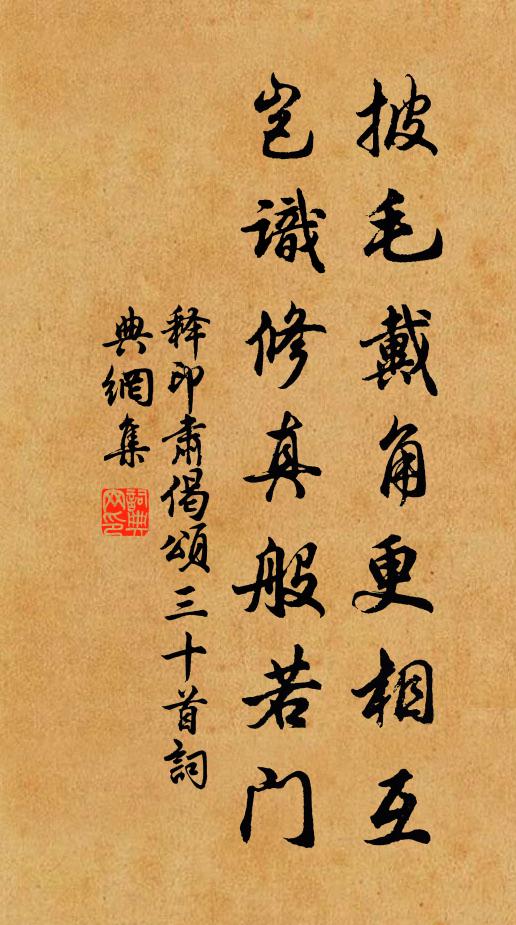 披毛戴角更相互
岂識修真般若門
释印肃偈頌三十首詞
典網集
詞典網印